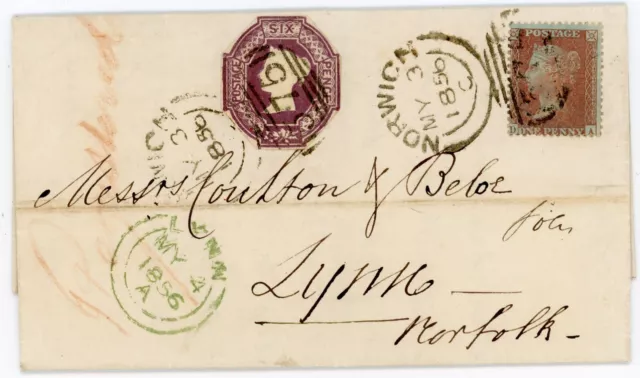 SIX
POSTAGE
PENCE
NORWICH
MY 3
1856
C
POSTAGE
ONE PENNY
A
MY 3
1856
Messrs Coulton & Beloe
LYNN
MY 4
1856
A
Lynn —
Norfolk —
Registered